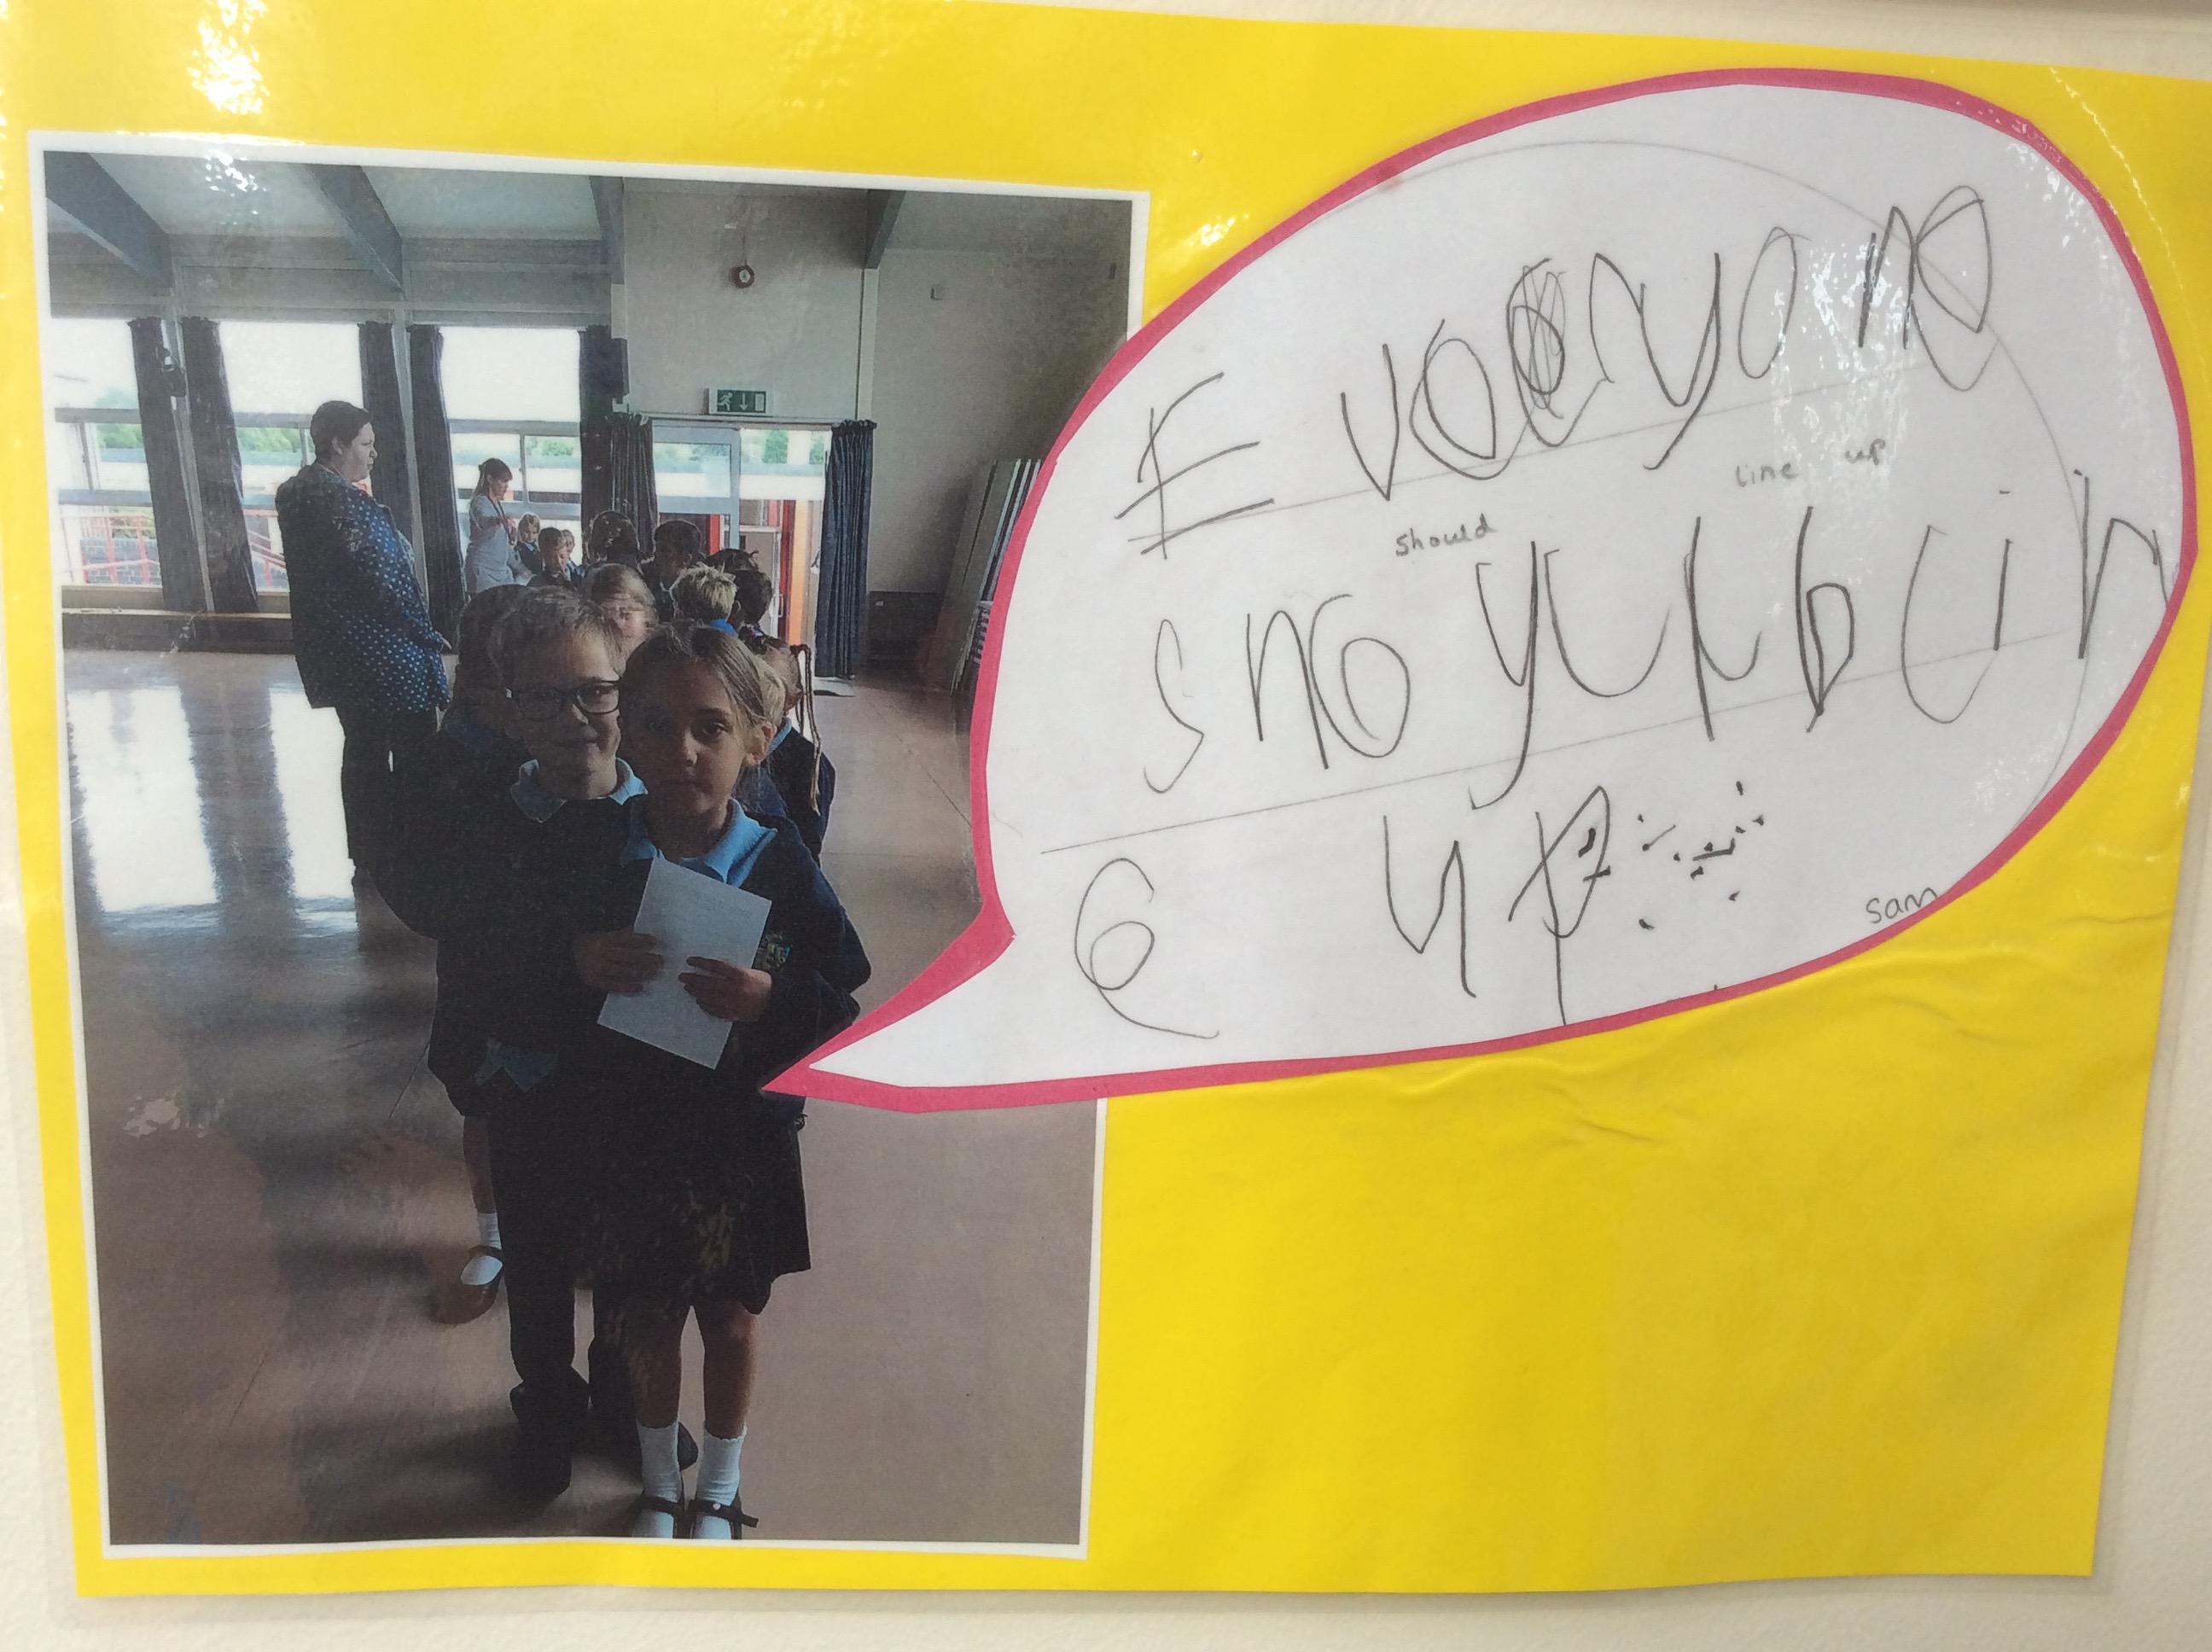 Everyone
should line up
shoulb lin
e up.
sam